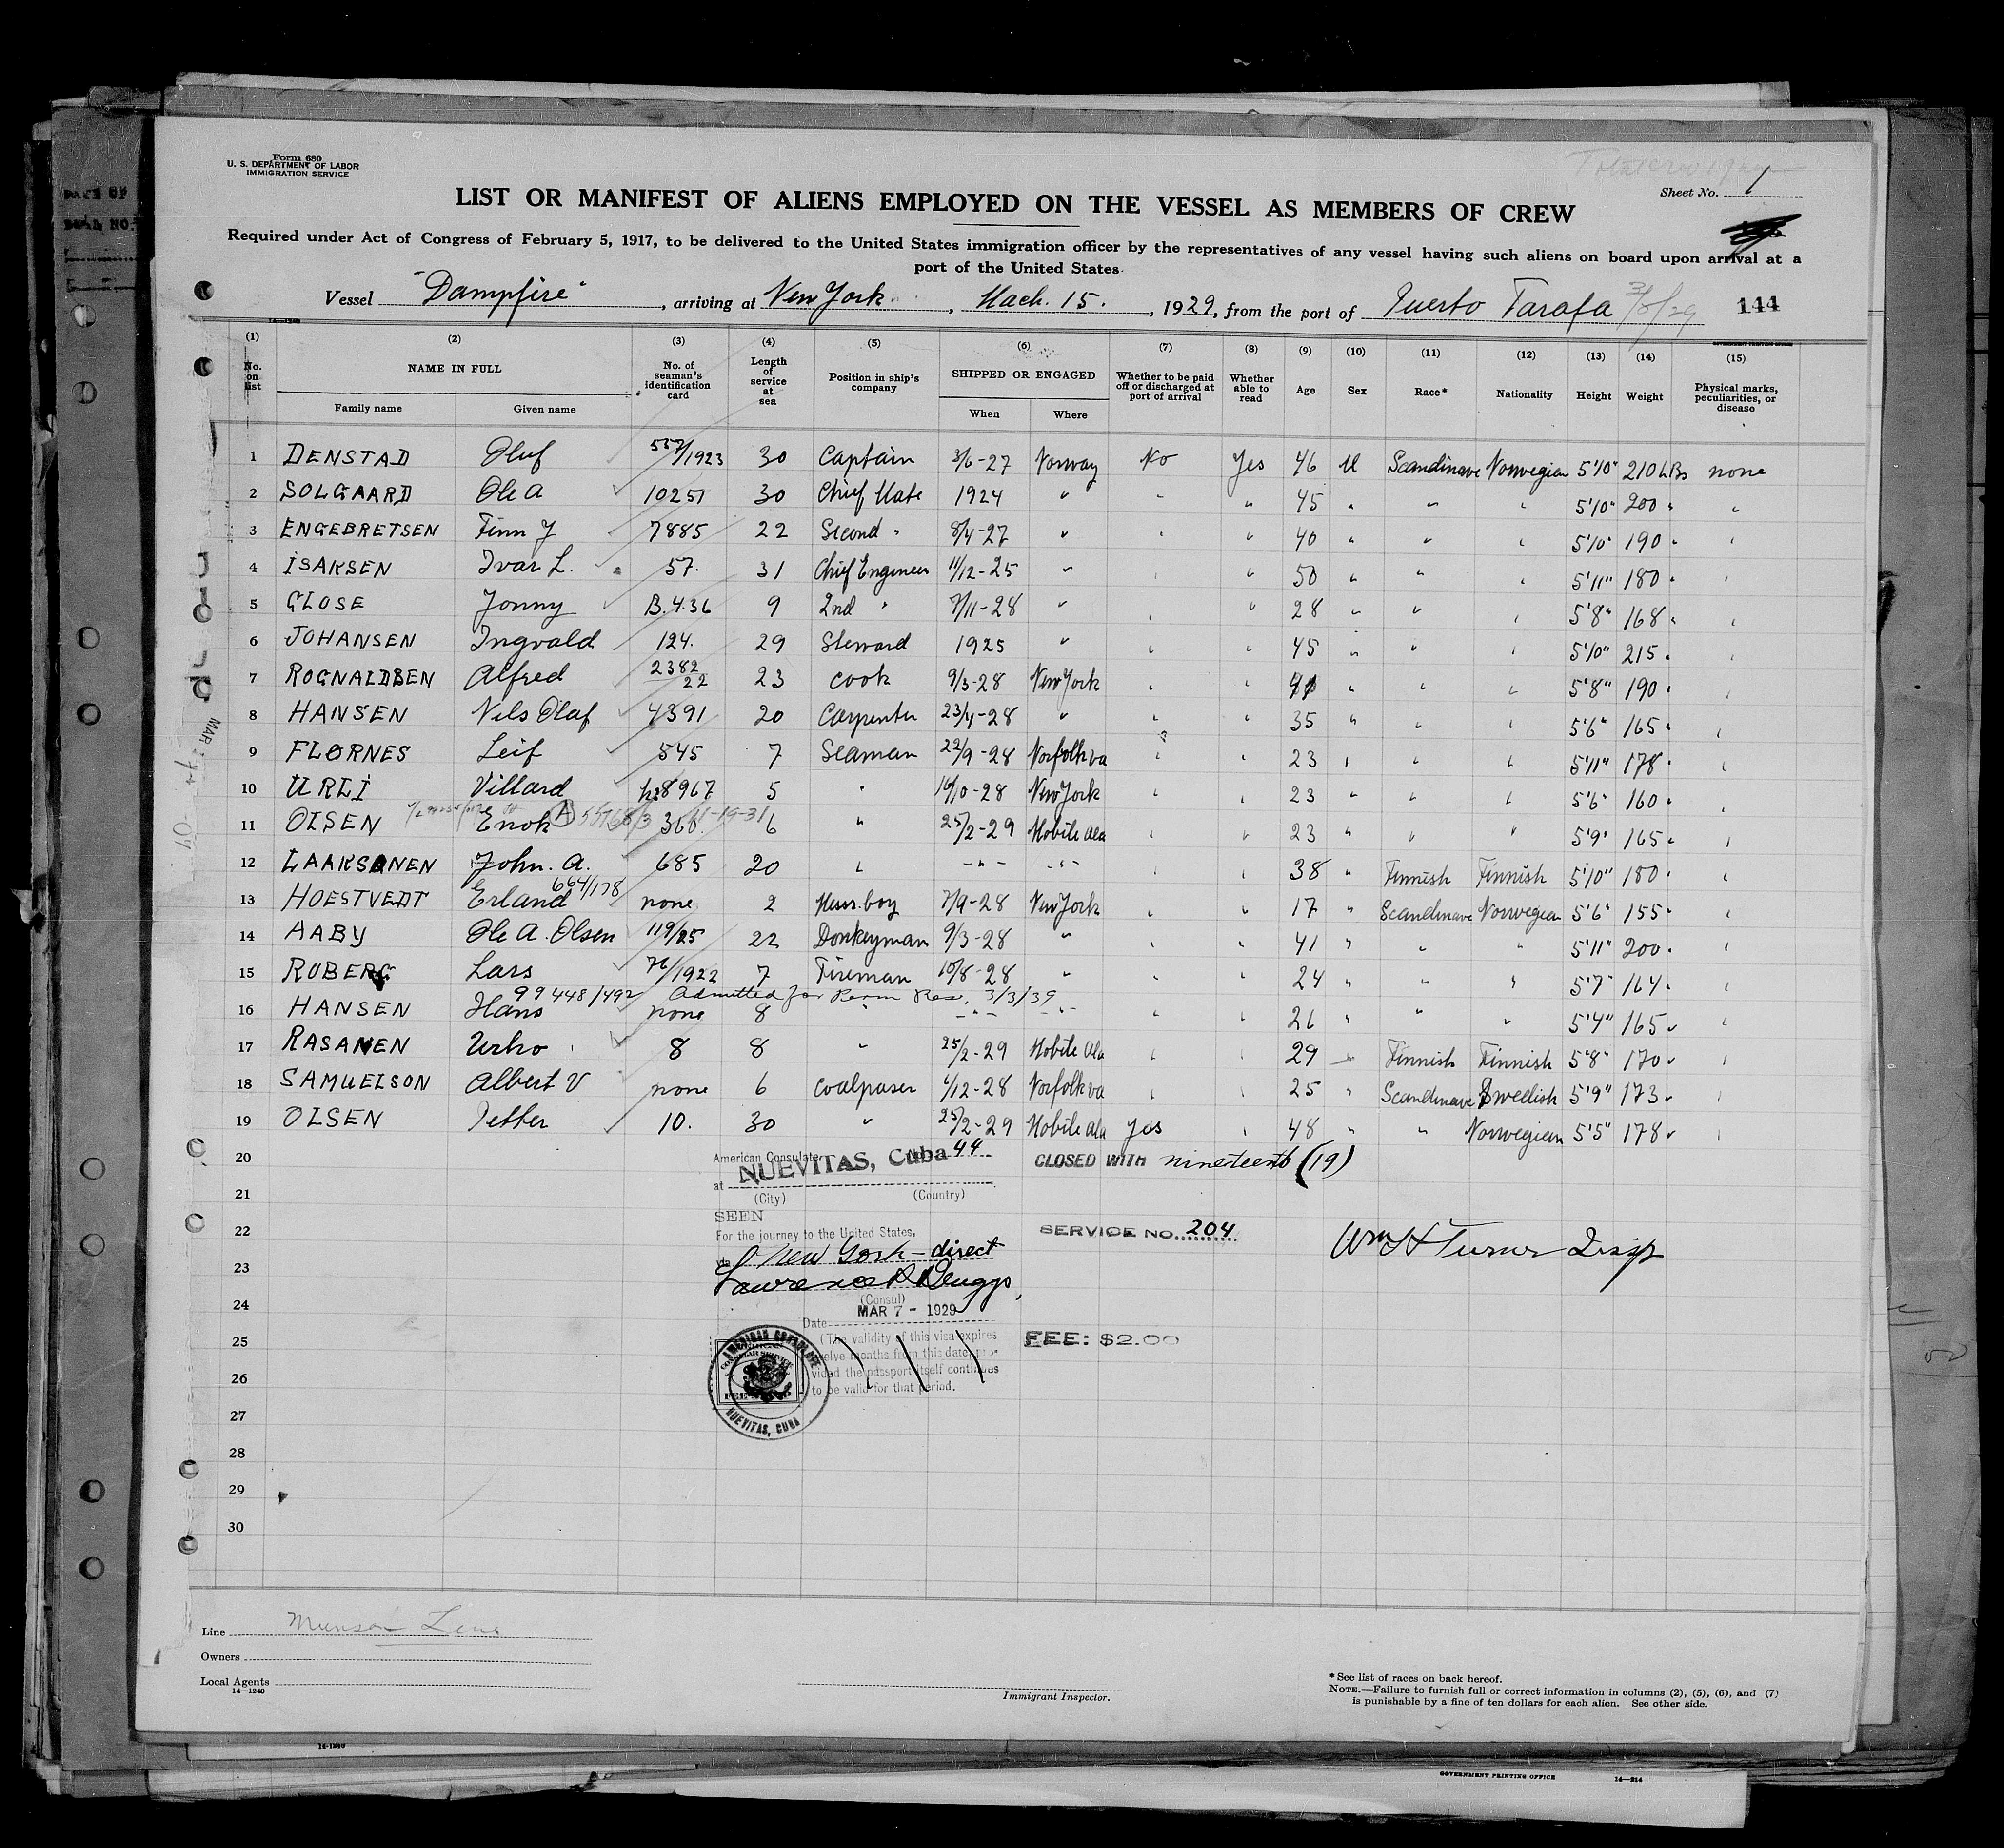 Form 680
U. S. DEPARTMENT OF LABOR
IMMIGRATION SERVICE
Sheet No. 1
LIST OR MANIFEST OF ALIENS EMPLOYED ON THE VESSEL AS MEMBERS OF CREW
Required under Act of Congress of February 5, 1917, to be delivered to the United States immigration officer by the representatives of any vessel having such aliens on board upon arrival at a
port of the United States
Vessel "Dampfire", arriving at New York, Mach. 15., 1929, from the port of Puerto Tarafa 144
14—1240
GOVERNMENT PRINTING OFFICE
(1) (2) (3) (4) (5) (6) (7) (8) (9) (10) (11) (12) (13) (14) (15)
No. on list NAME IN FULL No. of seaman's identification card Length of service at sea Position in ship's company SHIPPED OR ENGAGED Whether to be paid off or discharged at port of arrival Whether able to read Age Sex Race* Nationality Height Weight Physical marks, peculiarities, or disease
Family name Given name When Where
1 DENSTAD Oluf 557/1923 30 Captain 3/6-27 Norway No Yes 46 M Scandinave Norwegian 5'10" 210 LBs none
2 SOLGAARD Ole A 10251 30 Chief Mate 1924 " " " 45 " " " 5'10" 200 " "
3 ENGEBRETSEN Finn J 7885 22 Second " 8/4-27 " " " 40 " " " 5'10" 190 " "
4 ISAKSEN Ivar L. 57. 31 Chief Engineer 11/12-25 " " " 50 " " " 5'11" 180 " "
5 GLOSE Jonny B.4.36 9 2nd " 7/11-28 " " " 28 " " " 5'8" 168 " "
6 JOHANSEN Ingvald 124. 29 Steward 1925 " " " 45 " " " 5'10" 215 " "
7 ROGNALDSEN Alfred 2382/22 23 cook 9/3-28 New York " " 41 " " " 5'8" 190 " "
8 HANSEN Nils Olaf 4391 20 Carpenter 23/4-28 " " " 35 " " " 5'6" 165 " "
9 FLØRNES Leif 545 7 Seaman 22/9-28 Norfolk va " " 23 " " " 5'11" 178 " "
10 URLI Villard 8967 5 " 14/10-28 New York " " 23 " " " 5'6" 160 " "
11 OLSEN Enok 360. 6 " 25/2-29 Mobile Ala " " 23 " " " 5'9" 165 " "
11-19-31
12 LAAKSONEN John. A. 685 20 " -"- -"- " " 38 " Finnish Finnish 5'10" 180 " "
664/178
13 HOESTVEDT Erland none 2 Mess-boy 7/9-28 New York " " 17 " Scandinave Norwegian 5'6" 155 " "
14 AABY Ole A. Olsen 119/25 22 Donkeyman 9/3-28 " " " 41 " " " 5'11" 200 " "
15 ROBERG Lars 76/1922 7 Fireman 10/8-28 " " " 24 " " " 5'7" 164 " "
99448/492 Admitted for Perm Res. 3/3/39
16 HANSEN Hans none 8 " -"- -"- " " 26 " " " 5'4" 165 " "
17 RASANEN Urho 8 8 " 25/2-29 Mobile Ala " " 29 " Finnish Finnish 5'8" 170 " "
18 SAMUELSON Albert V none 6 coalpaser 4/12-28 Norfolk va " " 25 " Scandinave Swedish 5'9" 173 " "
19 OLSEN Petter 10. 30 " 25/2-29 Mobile Ala yes " 48 " " Norwegian 5'5" 178 " "
20
American Consulate 44
at NUEVITAS, Cuba
(City) (Country)
CLOSED WITH nineteenth (19)
21
SEEN
22
For the journey to the United States,
via New York - direct
SERVICE NO. 204
Wm H Turner Insp
23
Lawrence
(Consul)
24
Date MAR 7 - 1929
25
(The validity of this visa expires
twelve months from this date, pro-
vided the passport itself continues
to be valid for that period.
FEE: $2.00
AMERICAN CONSULATE
NUEVITAS, CUBA
26
27
28
29
30
Line Munson Line
Owners
Local Agents
14—1240
Immigrant Inspector.
*See list of races on back hereof.
NOTE.—Failure to furnish full or correct information in columns (2), (5), (6), and (7)
is punishable by a fine of ten dollars for each alien. See other side.
14-1240
GOVERNMENT PRINTING OFFICE 14—214